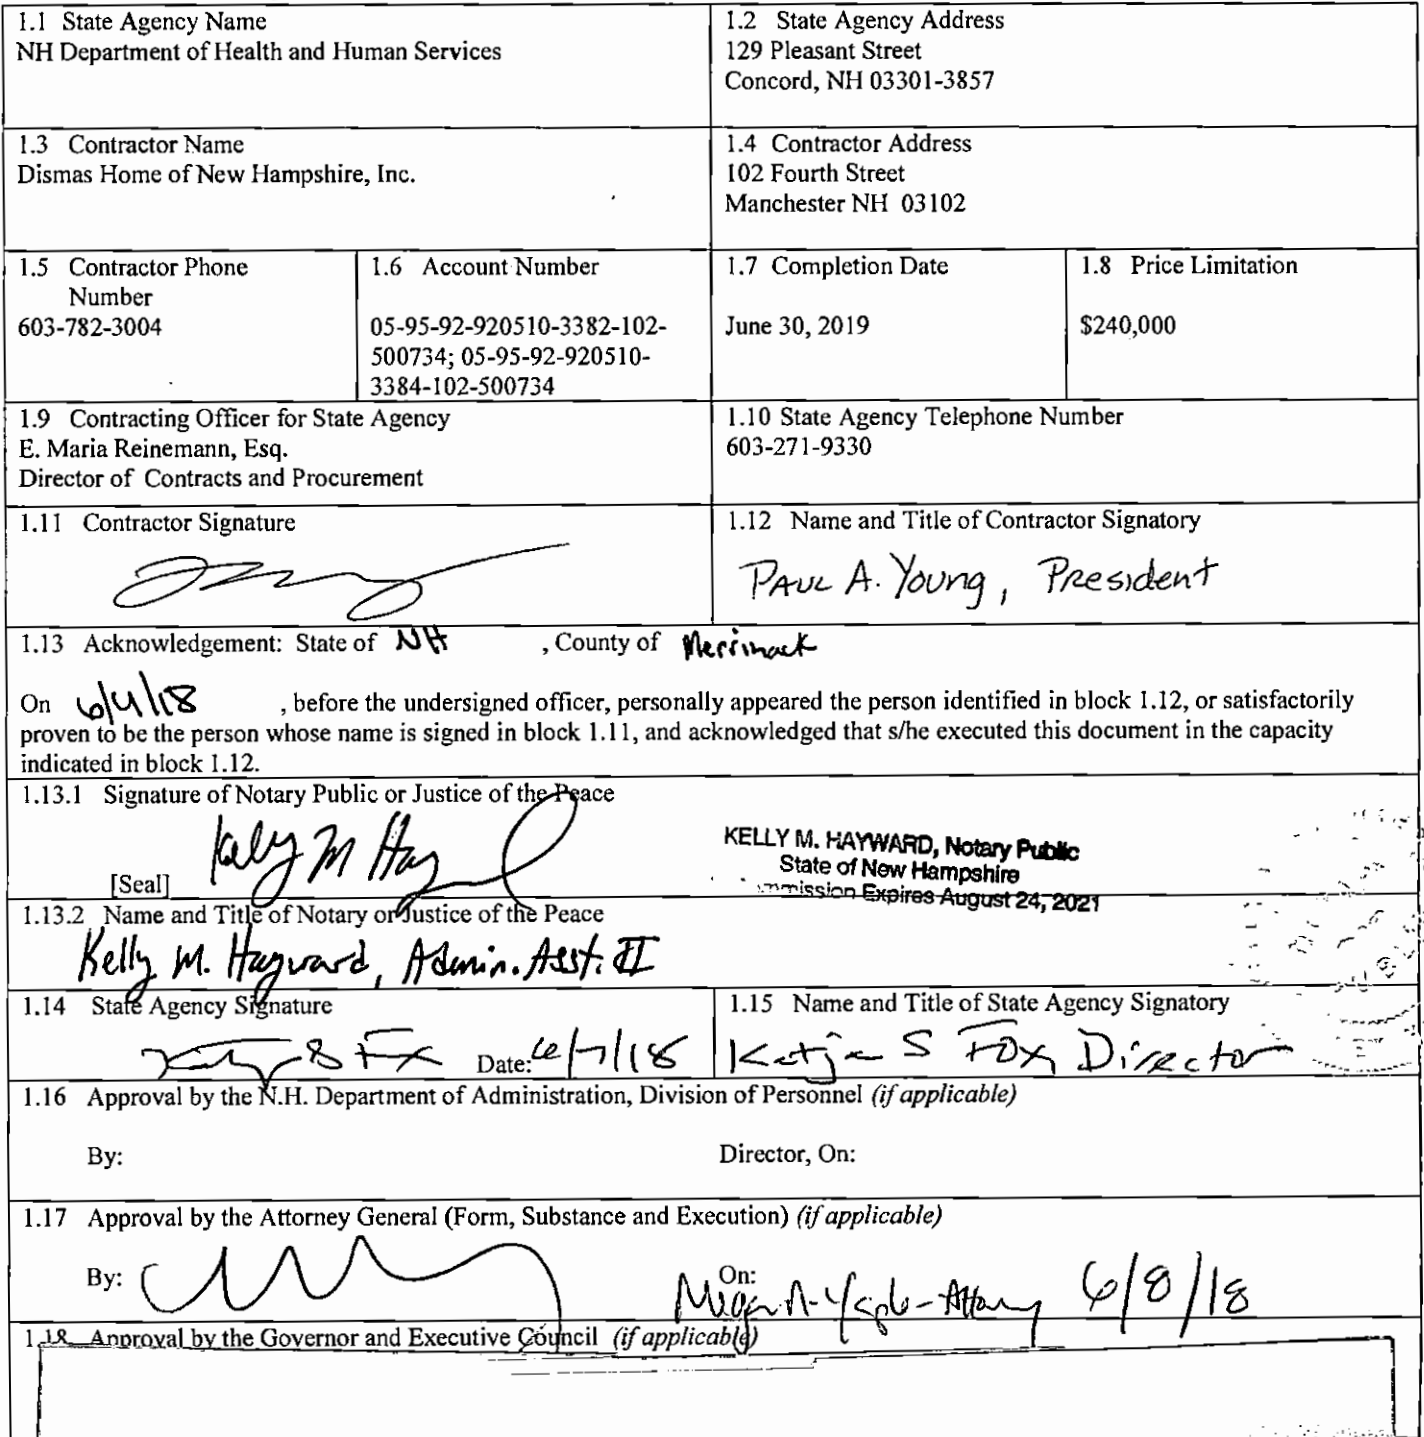 1.1 State Agency Name
NH Department of Health and Human Services
1.2 State Agency Address
129 Pleasant Street
Concord, NH 03301-3857
1.3 Contractor Name
Dismas Home of New Hampshire, Inc.
1.4 Contractor Address
102 Fourth Street
Manchester NH 03102
1.5 Contractor Phone
Number
603-782-3004
1.6 Account Number
05-95-92-920510-3382-102-
500734; 05-95-92-920510-
3384-102-500734
1.7 Completion Date
June 30, 2019
1.8 Price Limitation
$240,000
1.9 Contracting Officer for State Agency
E. Maria Reinemann, Esq.
Director of Contracts and Procurement
1.10 State Agency Telephone Number
603-271-9330
1.11 Contractor Signature
1.12 Name and Title of Contractor Signatory
Paul A. Young, President
1.13 Acknowledgement: State of NH , County of Merrimack
On 6/4/18 , before the undersigned officer, personally appeared the person identified in block 1.12, or satisfactorily
proven to be the person whose name is signed in block 1.11, and acknowledged that s/he executed this document in the capacity
indicated in block 1.12.
1.13.1 Signature of Notary Public or Justice of the Peace
Kelly M Hay
[Seal]
KELLY M. HAYWARD, Notary Public
State of New Hampshire
mmission Expires August 24, 2021
1.13.2 Name and Title of Notary or Justice of the Peace
Kelly M. Hayward, Admin. Asst. II
1.14 State Agency Signature
Date: 6/7/18
1.15 Name and Title of State Agency Signatory
Katja S Fox, Director
1.16 Approval by the N.H. Department of Administration, Division of Personnel (if applicable)
By:
Director, On:
1.17 Approval by the Attorney General (Form, Substance and Execution) (if applicable)
By:
On:
6/8/18
1.18 Approval by the Governor and Executive Council (if applicable)